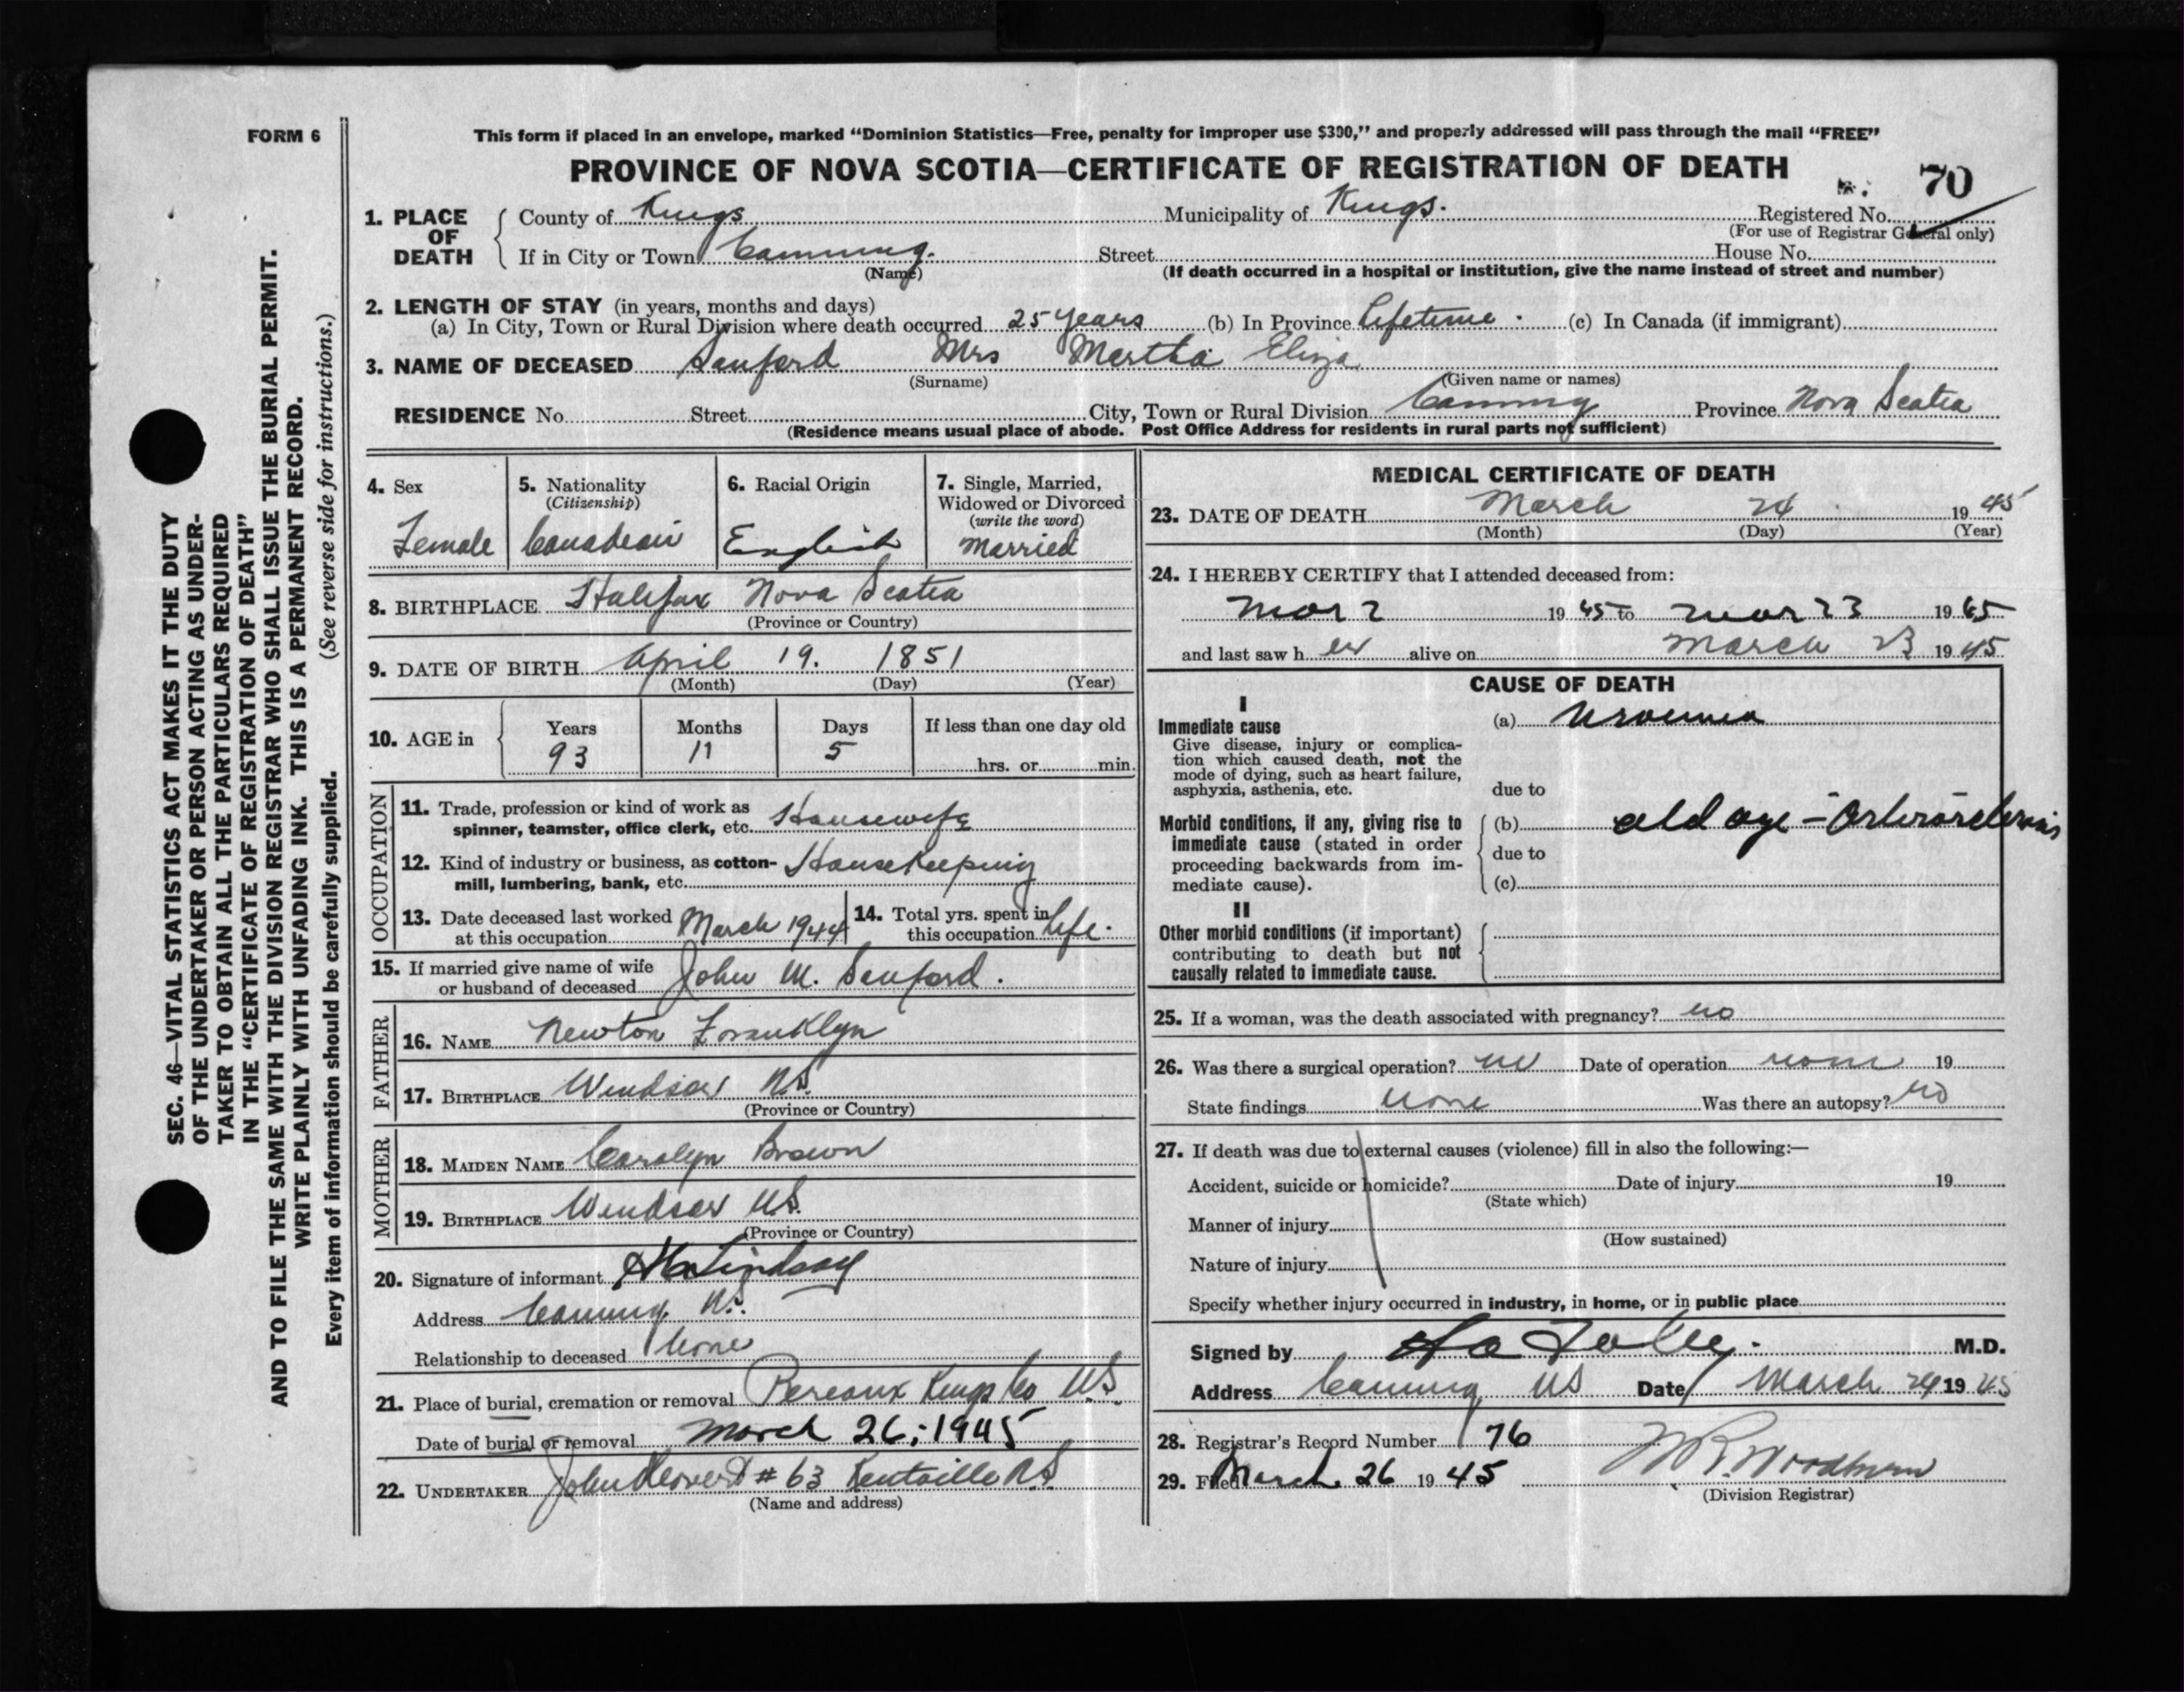 FORM 6
This form if placed in an envelope, marked “Dominion Statistics—Free, penalty for improper use $300,” and properly addressed will pass through the mail “FREE”
PROVINCE OF NOVA SCOTIA—CERTIFICATE OF REGISTRATION OF DEATH
70
1. PLACE OF DEATH
County of Kings Municipality of Kings. Registered No.
(For use of Registrar General only)
If in City or Town Canning. Street House No.
(Name) (If death occurred in a hospital or institution, give the name instead of street and number)
2. LENGTH OF STAY (in years, months and days)
(a) In City, Town or Rural Division where death occurred 25 years (b) In Province Lifetime. (c) In Canada (if immigrant)
3. NAME OF DECEASED Sanford Mrs Martha Eliza
(Surname) (Given name or names)
RESIDENCE No. Street City, Town or Rural Division Canning Province Nova Scotia
(Residence means usual place of abode. Post Office Address for residents in rural parts not sufficient)
4. Sex
Female
5. Nationality
(Citizenship)
Canadian
6. Racial Origin
English
7. Single, Married,
Widowed or Divorced
(write the word)
Married
8. BIRTHPLACE Halifax Nova Scotia
(Province or Country)
9. DATE OF BIRTH April 19. 1851
(Month) (Day) (Year)
10. AGE in
Years Months Days If less than one day old
93 11 5 hrs. or min.
OCCUPATION
11. Trade, profession or kind of work as
spinner, teamster, office clerk, etc. Housewife
12. Kind of industry or business, as cotton-
mill, lumbering, bank, etc. Housekeeping
13. Date deceased last worked
at this occupation March 1944
14. Total yrs. spent in
this occupation Life.
15. If married give name of wife
or husband of deceased John M. Sanford.
FATHER
16. NAME Newton Franklyn
17. BIRTHPLACE Windsor N.S.
(Province or Country)
MOTHER
18. MAIDEN NAME Carolyn Brown
19. BIRTHPLACE Windsor N.S.
(Province or Country)
20. Signature of informant Lindsay
Address Canning N.S.
Relationship to deceased None
21. Place of burial, cremation or removal Pereaux Kings Co N.S.
Date of burial or removal March 26, 1945
22. UNDERTAKER John # 63 Kentville N.S.
(Name and address)
MEDICAL CERTIFICATE OF DEATH
23. DATE OF DEATH March 24 1945
(Month) (Day) (Year)
24. I HEREBY CERTIFY that I attended deceased from:
Mar 2 1945 to Mar 23 1945
and last saw her alive on March 23 1945
CAUSE OF DEATH
I
Immediate cause
Give disease, injury or complica-
tion which caused death, not the
mode of dying, such as heart failure,
asphyxia, asthenia, etc.
(a) Uraemia
due to
Morbid conditions, if any, giving rise to
immediate cause (stated in order
proceeding backwards from im-
mediate cause).
(b) old age – Arteriosclerosis
due to
(c)
II
Other morbid conditions (if important)
contributing to death but not
causally related to immediate cause.
25. If a woman, was the death associated with pregnancy? no
26. Was there a surgical operation? no Date of operation none 19
State findings none Was there an autopsy? no
27. If death was due to external causes (violence) fill in also the following:—
Accident, suicide or homicide? Date of injury 19
(State which)
Manner of injury
(How sustained)
Nature of injury
Specify whether injury occurred in industry, in home, or in public place
Signed by M.D.
Address Canning NS Date March 24 1945
28. Registrar's Record Number 76
29. Filed March 26 1945 Woodburn
(Division Registrar)
SEC. 46—VITAL STATISTICS ACT MAKES IT THE DUTY
OF THE UNDERTAKER OR PERSON ACTING AS UNDER-
TAKER TO OBTAIN ALL THE PARTICULARS REQUIRED
IN THE “CERTIFICATE OF REGISTRATION OF DEATH”
AND TO FILE THE SAME WITH THE DIVISION REGISTRAR WHO SHALL ISSUE THE BURIAL PERMIT.
WRITE PLAINLY WITH UNFADING INK. THIS IS A PERMANENT RECORD.
Every item of information should be carefully supplied. (See reverse side for instructions.)